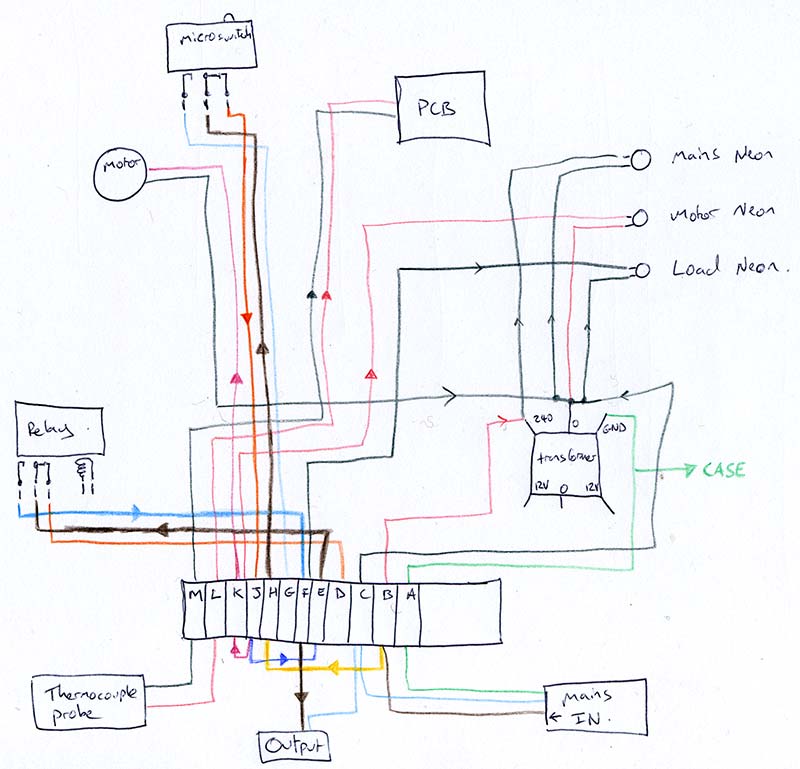 Microswitch
PCB
Motor
Mains Neon
Motor Neon
Load Neon.
Relay.
240 0 GND
transformer
12V 0 12V
CASE
M L K J H G F E D C B A
Thermocouple
probe
Mains
← IN.
Output